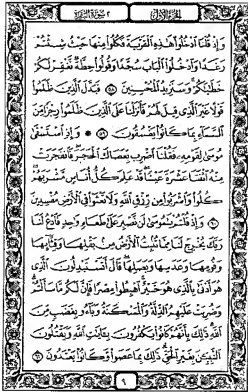 الجزء الأول ٢ سورة البقرة
وَإِذْ قُلْنَا ٱدْخُلُوا۟ هَٰذِهِ ٱلْقَرْيَةَ فَكُلُوا۟ مِنْهَا حَيْثُ شِئْتُمْ
رَغَدًا وَٱدْخُلُوا۟ ٱلْبَابَ سُجَّدًا وَقُولُوا۟ حِطَّةٌ نَّغْفِرْ لَكُمْ
خَطَٰيَٰكُمْ وَسَنَزِيدُ ٱلْمُحْسِنِينَ ٥٨ فَبَدَّلَ ٱلَّذِينَ ظَلَمُوا۟
قَوْلًا غَيْرَ ٱلَّذِى قِيلَ لَهُمْ فَأَنزَلْنَا عَلَى ٱلَّذِينَ ظَلَمُوا۟ رِجْزًا مِّنَ
ٱلسَّمَآءِ بِمَا كَانُوا۟ يَفْسُقُونَ ٥٩ وَإِذِ ٱسْتَسْقَىٰ
مُوسَىٰ لِقَوْمِهِۦ فَقُلْنَا ٱضْرِب بِّعَصَاكَ ٱلْحَجَرَ فَٱنفَجَرَتْ
مِنْهُ ٱثْنَتَا عَشْرَةَ عَيْنًا قَدْ عَلِمَ كُلُّ أُنَاسٍ مَّشْرَبَهُمْ
كُلُوا۟ وَٱشْرَبُوا۟ مِن رِّزْقِ ٱللَّهِ وَلَا تَعْثَوْا۟ فِى ٱلْأَرْضِ مُفْسِدِينَ
٦٠ وَإِذْ قُلْتُمْ يَٰمُوسَىٰ لَن نَّصْبِرَ عَلَىٰ طَعَامٍ وَٰحِدٍ فَٱدْعُ لَنَا
رَبَّكَ يُخْرِجْ لَنَا مِمَّا تُنۢبِتُ ٱلْأَرْضُ مِنۢ بَقْلِهَا وَقِثَّآئِهَا
وَفُومِهَا وَعَدَسِهَا وَبَصَلِهَا قَالَ أَتَسْتَبْدِلُونَ ٱلَّذِى
هُوَ أَدْنَىٰ بِٱلَّذِى هُوَ خَيْرٌ ٱهْبِطُوا۟ مِصْرًا فَإِنَّ لَكُم مَّا سَأَلْتُمْ
وَضُرِبَتْ عَلَيْهِمُ ٱلذِّلَّةُ وَٱلْمَسْكَنَةُ وَبَآءُو بِغَضَبٍ مِّنَ
ٱللَّهِ ذَٰلِكَ بِأَنَّهُمْ كَانُوا۟ يَكْفُرُونَ بِـَٔايَٰتِ ٱللَّهِ وَيَقْتُلُونَ
ٱلنَّبِيِّـۧنَ بِغَيْرِ ٱلْحَقِّ ذَٰلِكَ بِمَا عَصَوا۟ وَّكَانُوا۟ يَعْتَدُونَ ٦١
٩